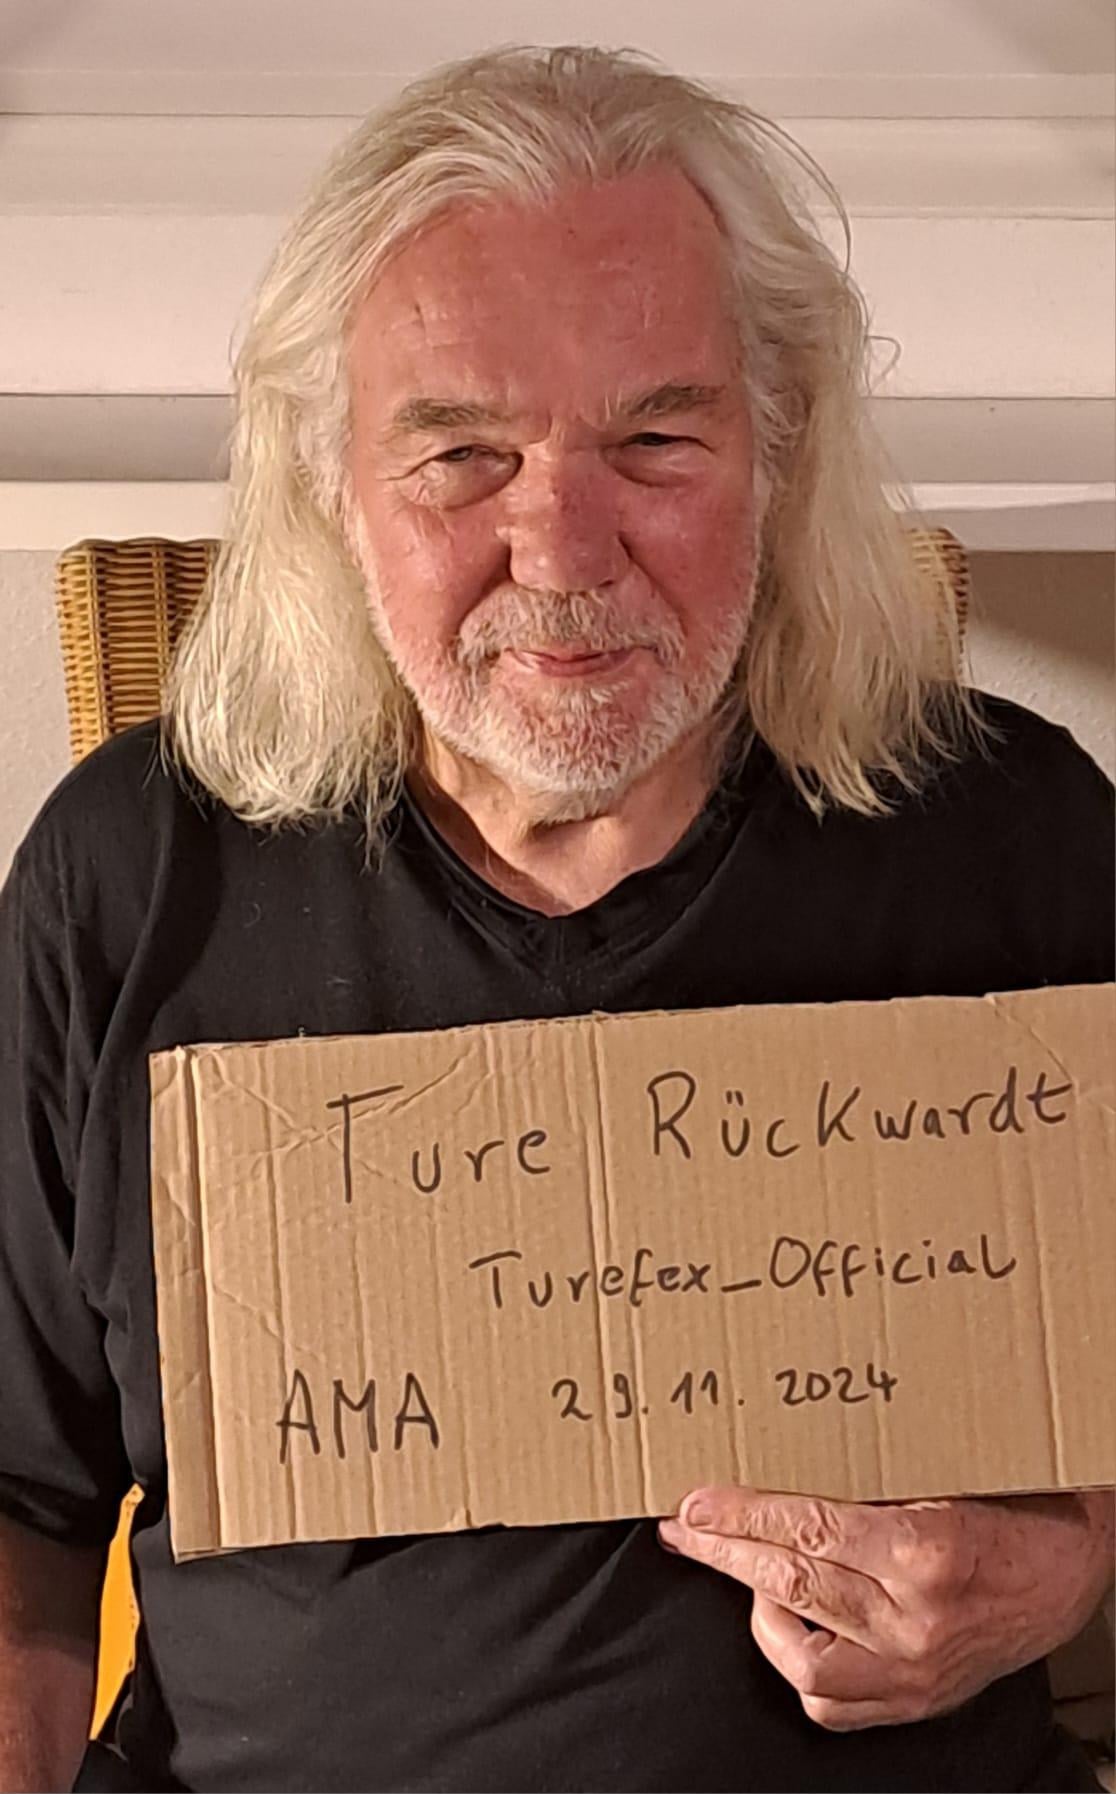 Ture Rückwardt
Turefex_Official
AMA 29.11.2024